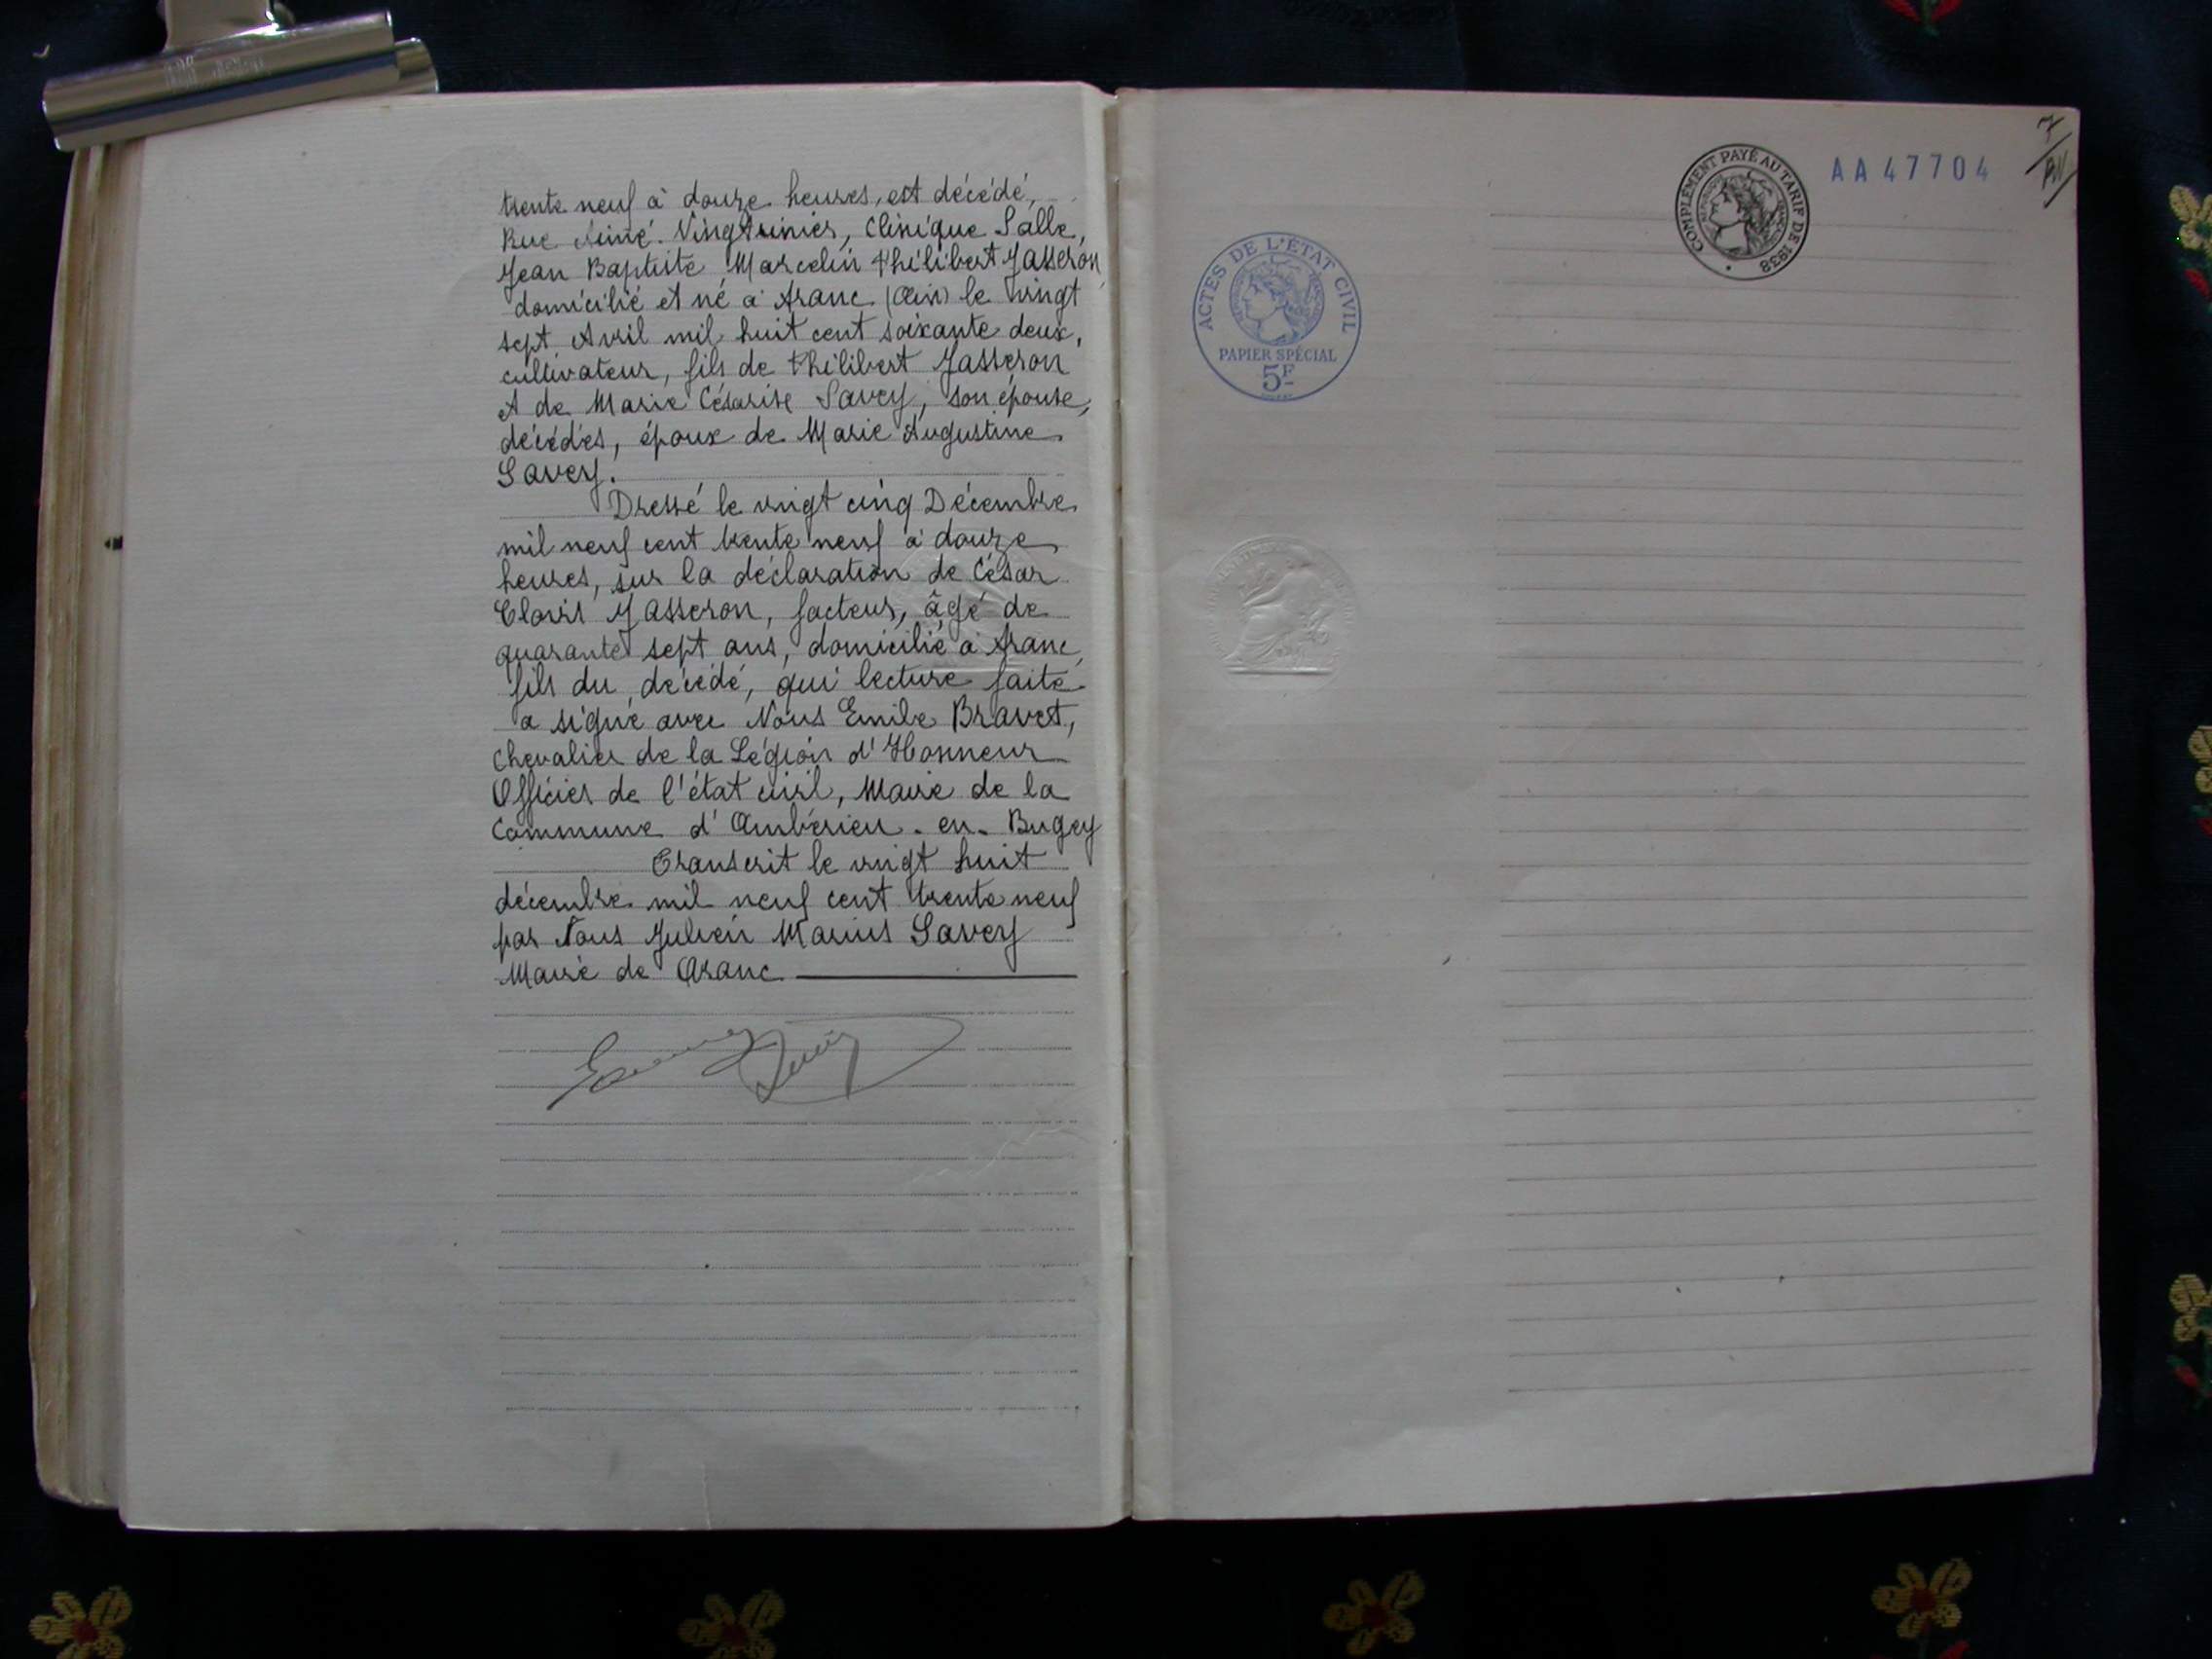 trente neuf à douze heures, est décédé,
Rue Aimé Vingtrinier, Clinique Salle,
Jean Baptiste Marcelin Philibert Jasseron
domicilié et né à Aranc (Ain) le vingt
sept Avril mil huit cent soixante deux,
cultivateur, fils de Philibert Jasseron
et de Marie Césarise Savey, son épouse,
décédés, époux de Marie Augustine
Savey.
Dressé le vingt cinq Décembre
mil neuf cent trente neuf à douze
heures, sur la déclaration de César
Clovis Jasseron, facteur, âgé de
quarante sept ans, domicilié à Aranc,
fils du décédé, qui lecture faite
a signé avec Nous Emile Bravet,
Chevalier de la Légion d'Honneur
Officier de l'état civil, Maire de la
Commune d'Ambérieu-en-Bugey
Transcrit le vingt huit
décembre mil neuf cent trente neuf
par Nous Julien Marius Savey
Maire de Aranc
COMPLÉMENT PAYÉ AU TARIF DE 1938
AA 47704
7
ACTES DE L'ÉTAT CIVIL
PAPIER SPÉCIAL
5F